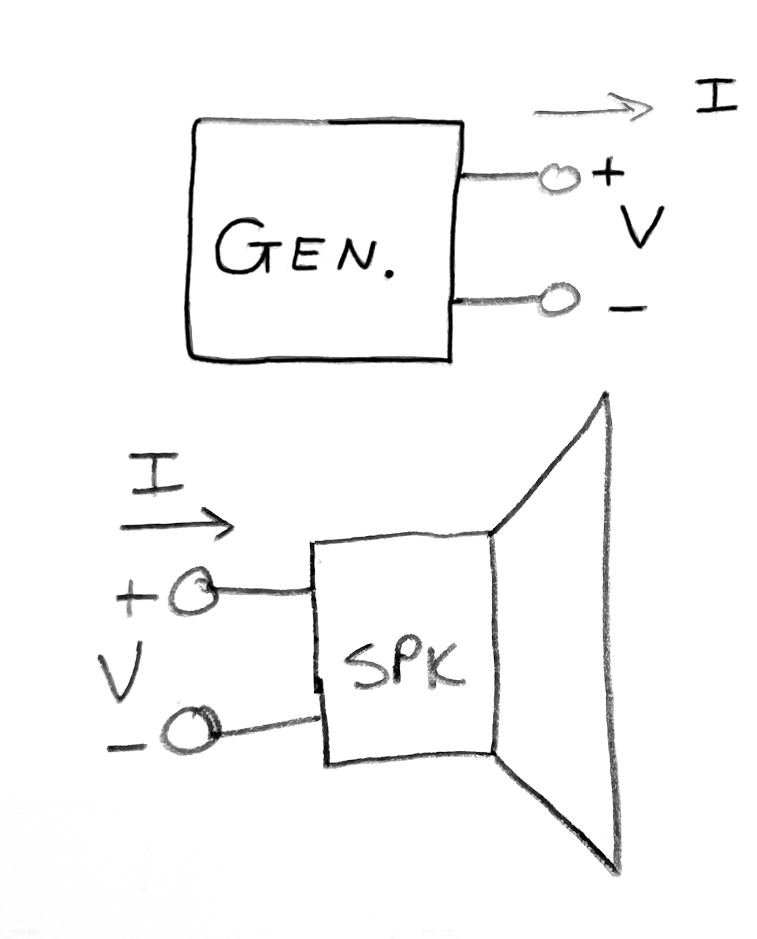 I
+
V
GEN.
-
I
+
V
SPK
-